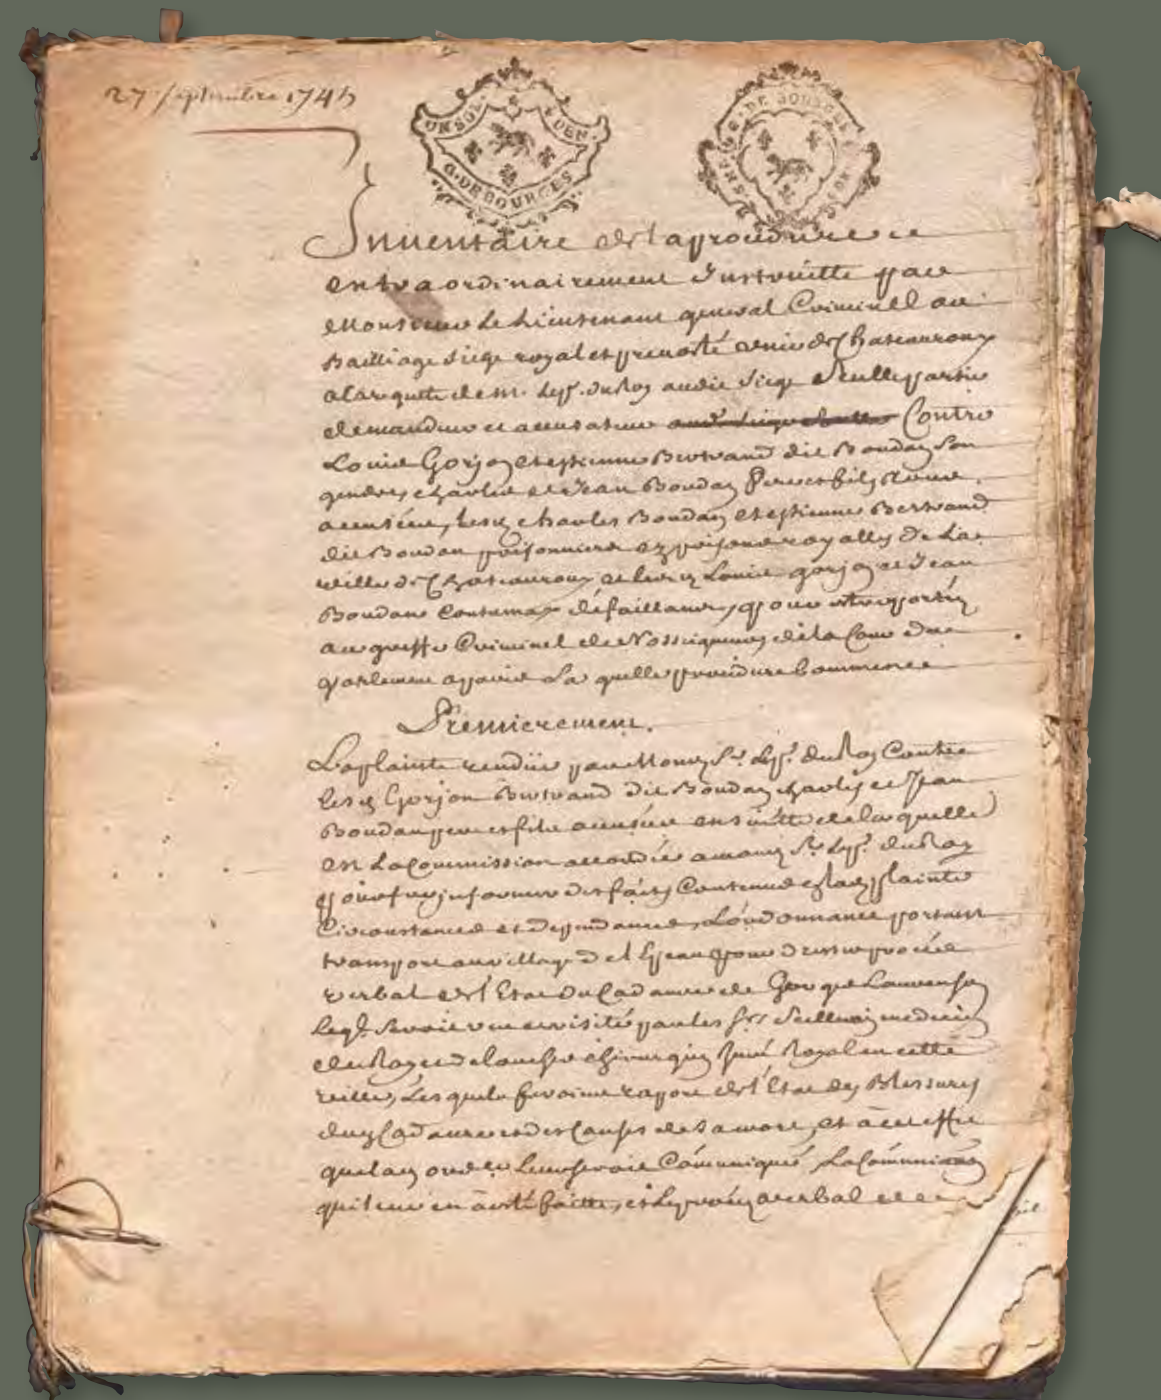 27 Septembre 1745
UN SOL 4 DEN.
G. DE BOURGES
G. DE BOURGES
Inventaire de la procedure
extraordinairement Instruitte par
Monsieur Le Lieutenant general Criminel au
Bailliage Siege royal et prevosté unie de Chateauroux
a la requete de m. Le p.r du Roy audit Siege Seulle partie
demandeur et accusateur Contre
Louis Gorjon et estienne Bertrand dit Boudan Son
gendre, charles et Jean Boudan Pere et fils
accusés, Lesd charles Boudan et estienne Bertrand
dit Boudan prisonniers ez prisons royalles de La
ville de Chateauroux et lesd Louis gorjon et Jean
Boudan Contumax défaillants, pour etre portée
au greffe Criminel de Nosseigneurs de la Cour du
parlement a paris La quelle procedure Commence
Premierement.
La plainte rendüe par Mond S.r Le p.r du Roy Contre
lesd Gorjon Bertrand dit Boudan charles et Jean
Boudan pere et fils accusés ensuitte de la quelle
est La Commission accordée a mond S.r Le p.r du Roy
pour faire informer des faits Contenus en lad plainte
Circonstances et dependances, L'ordonnance portant
transport au village de pour dresser procés
verbal de l'Etat du Cadavre de George
Leq.l Seroit vu et visité par les S.rs medecin
du Roy et chirurgien Juré Royal en cette
ville, Lesquels feroient raport de l'Etat des Blessures
dud Cadavre et des Causes de Sa mort, et a cet effet
que lad ord.ce Leur Seroit Communiquée, La
qui leur en a eté faitte, et Le procez verbal de